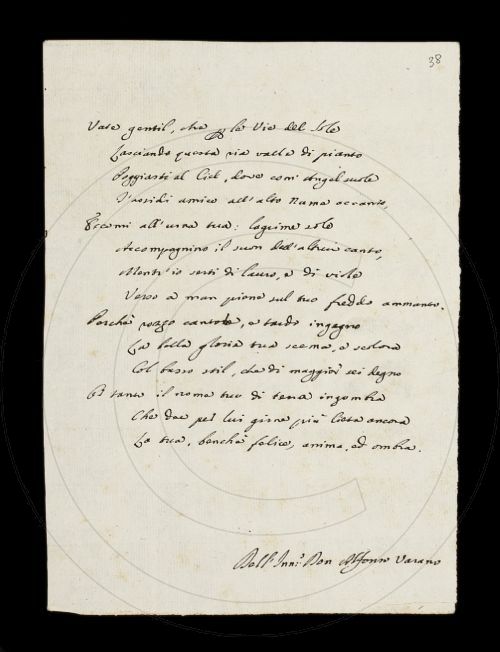 38
Vate gentil, che per le Vie del Sole
Lasciando questa ria valle di pianto
Poggiasti al Ciel, dove com' Angel suole
T'assidi amico all' alto Nume accanto,
Eccomi all' urna tua: lagrime sole
Accompagnino il suon dell' altrui canto,
Mentr' io serti di lauro, e di viole
Verso a man piene sul tuo freddo ammanto.
Perchè rozzo cantore, e tardo ingegno
La bella gloria tua scema, e scolora
Col basso stil, che di maggior sei degno
E tanto il nome tuo di terra ingombra
Che dee per lui girne più lieta ancora
La tua, benchè felice, anima, ed ombra.
Dell' Don Alfonso Varano